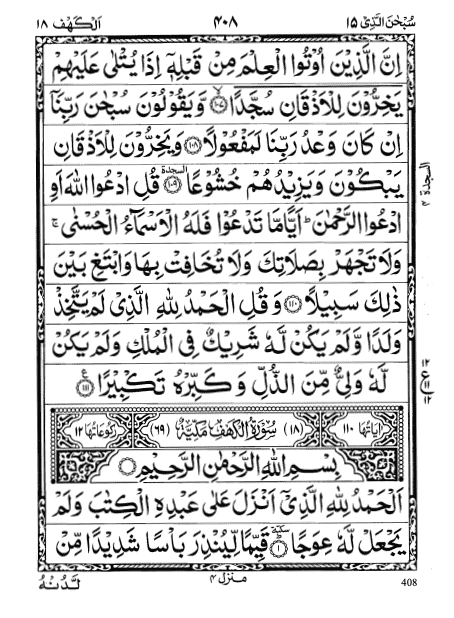 سُبْحٰنَ الَّذِیْ ١٥ ٤٠٨ اَلْكَهْف ١٨
اِنَّ الَّذِیْنَ اُوْتُوا الْعِلْمَ مِنْ قَبْلِهٖۤ اِذَا یُتْلٰی عَلَیْهِمْ
یَخِرُّوْنَ لِلْاَذْقَانِ سُجَّدًا ﴿١٠٧﴾ وَّ یَقُوْلُوْنَ سُبْحٰنَ رَبِّنَاۤ
اِنْ كَانَ وَعْدُ رَبِّنَا لَمَفْعُوْلًا ﴿١٠٨﴾ وَ یَخِرُّوْنَ لِلْاَذْقَانِ
یَبْكُوْنَ وَ یَزِیْدُهُمْ خُشُوْعًا ﴿١٠٩﴾ السجدة قُلِ ادْعُوا اللّٰهَ اَوِ
السجدة ٤
ادْعُوا الرَّحْمٰنَ ؕ اَیًّا مَّا تَدْعُوْا فَلَهُ الْاَسْمَآءُ الْحُسْنٰی ۚ
وَ لَا تَجْهَرْ بِصَلَاتِكَ وَ لَا تُخَافِتْ بِهَا وَ ابْتَغِ بَیْنَ
ذٰلِكَ سَبِیْلًا ﴿١١٠﴾ وَ قُلِ الْحَمْدُ لِلّٰهِ الَّذِیْ لَمْ یَتَّخِذْ
وَلَدًا وَّ لَمْ یَكُنْ لَّهٗ شَرِیْكٌ فِی الْمُلْكِ وَ لَمْ یَكُنْ
لَّهٗ وَلِیٌّ مِّنَ الذُّلِّ وَ كَبِّرْهُ تَكْبِیْرًا ﴿١١١﴾ ع
١٢
ع
١١
١٢
اٰیَاتُهَا ١١٠ (١٨) سُوْرَةُ الْكَهْفِ مَكِّیَّةٌ (٦٩) رُكُوْعَاتُهَا ١٢
بِسْمِ اللّٰهِ الرَّحْمٰنِ الرَّحِیْمِ
اَلْحَمْدُ لِلّٰهِ الَّذِیْۤ اَنْزَلَ عَلٰی عَبْدِهِ الْكِتٰبَ وَ لَمْ
یَجْعَلْ لَّهٗ عِوَجًا ﴿١﴾ سكتة قَیِّمًا لِّیُنْذِرَ بَاْسًا شَدِیْدًا مِّنْ
لَّدُنْهُ
منزل ٤
408